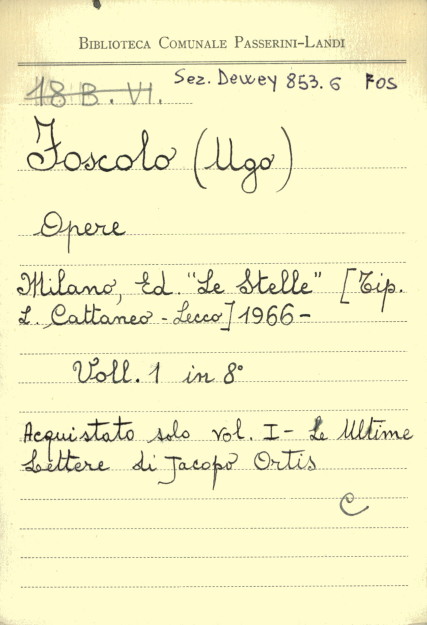 BIBLIOTECA COMUNALE PASSERINI-LANDI
18 B. VI. Sez. Dewey 853.6 FOS
Foscolo (Ugo)
Opere
Milano, Ed. "Le Stelle" [Tip.
L. Cattaneo - Lecco] 1966 -
Voll. 1 in 8°
Acquistato solo vol. I - Le Ultime
Lettere di Jacopo Ortis
C